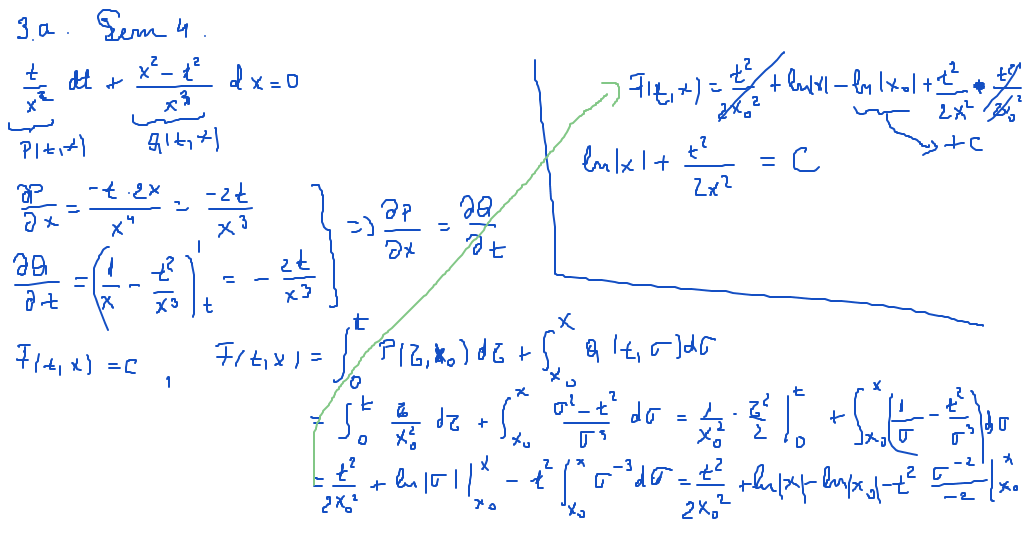 3.a. Sem 4.
t/x² dt + (x² - t²)/x³ dx = 0
P(t,x) Q(t,x)
∂P/∂x = (-t·2x)/x⁴ = -2t/x³
∂Q/∂t = (1/x - t²/x³)'_t = - 2t/x³
=> ∂P/∂x = ∂Q/∂t
F(t,x) = C , F(t,x) = ∫₀ᵗ P(τ,x₀)dτ + ∫_{x₀}^x Q(t,σ)dσ
= ∫₀ᵗ τ/x₀² dτ + ∫_{x₀}^x (σ² - t²)/σ³ dσ = 1/x₀² · τ²/2 |₀ᵗ + ∫_{x₀}^x (1/σ - t²/σ³)dσ
= t²/2x₀² + ln|σ| |_{x₀}^x - t² ∫_{x₀}^x σ⁻³dσ = t²/2x₀² + ln|x| - ln|x₀| - t² σ⁻²/-2 |_{x₀}^x
F(t,x) = t²/2x₀² + ln|x| - ln|x₀| + t²/2x² - t²/2x₀²
+C
ln|x| + t²/2x² = C